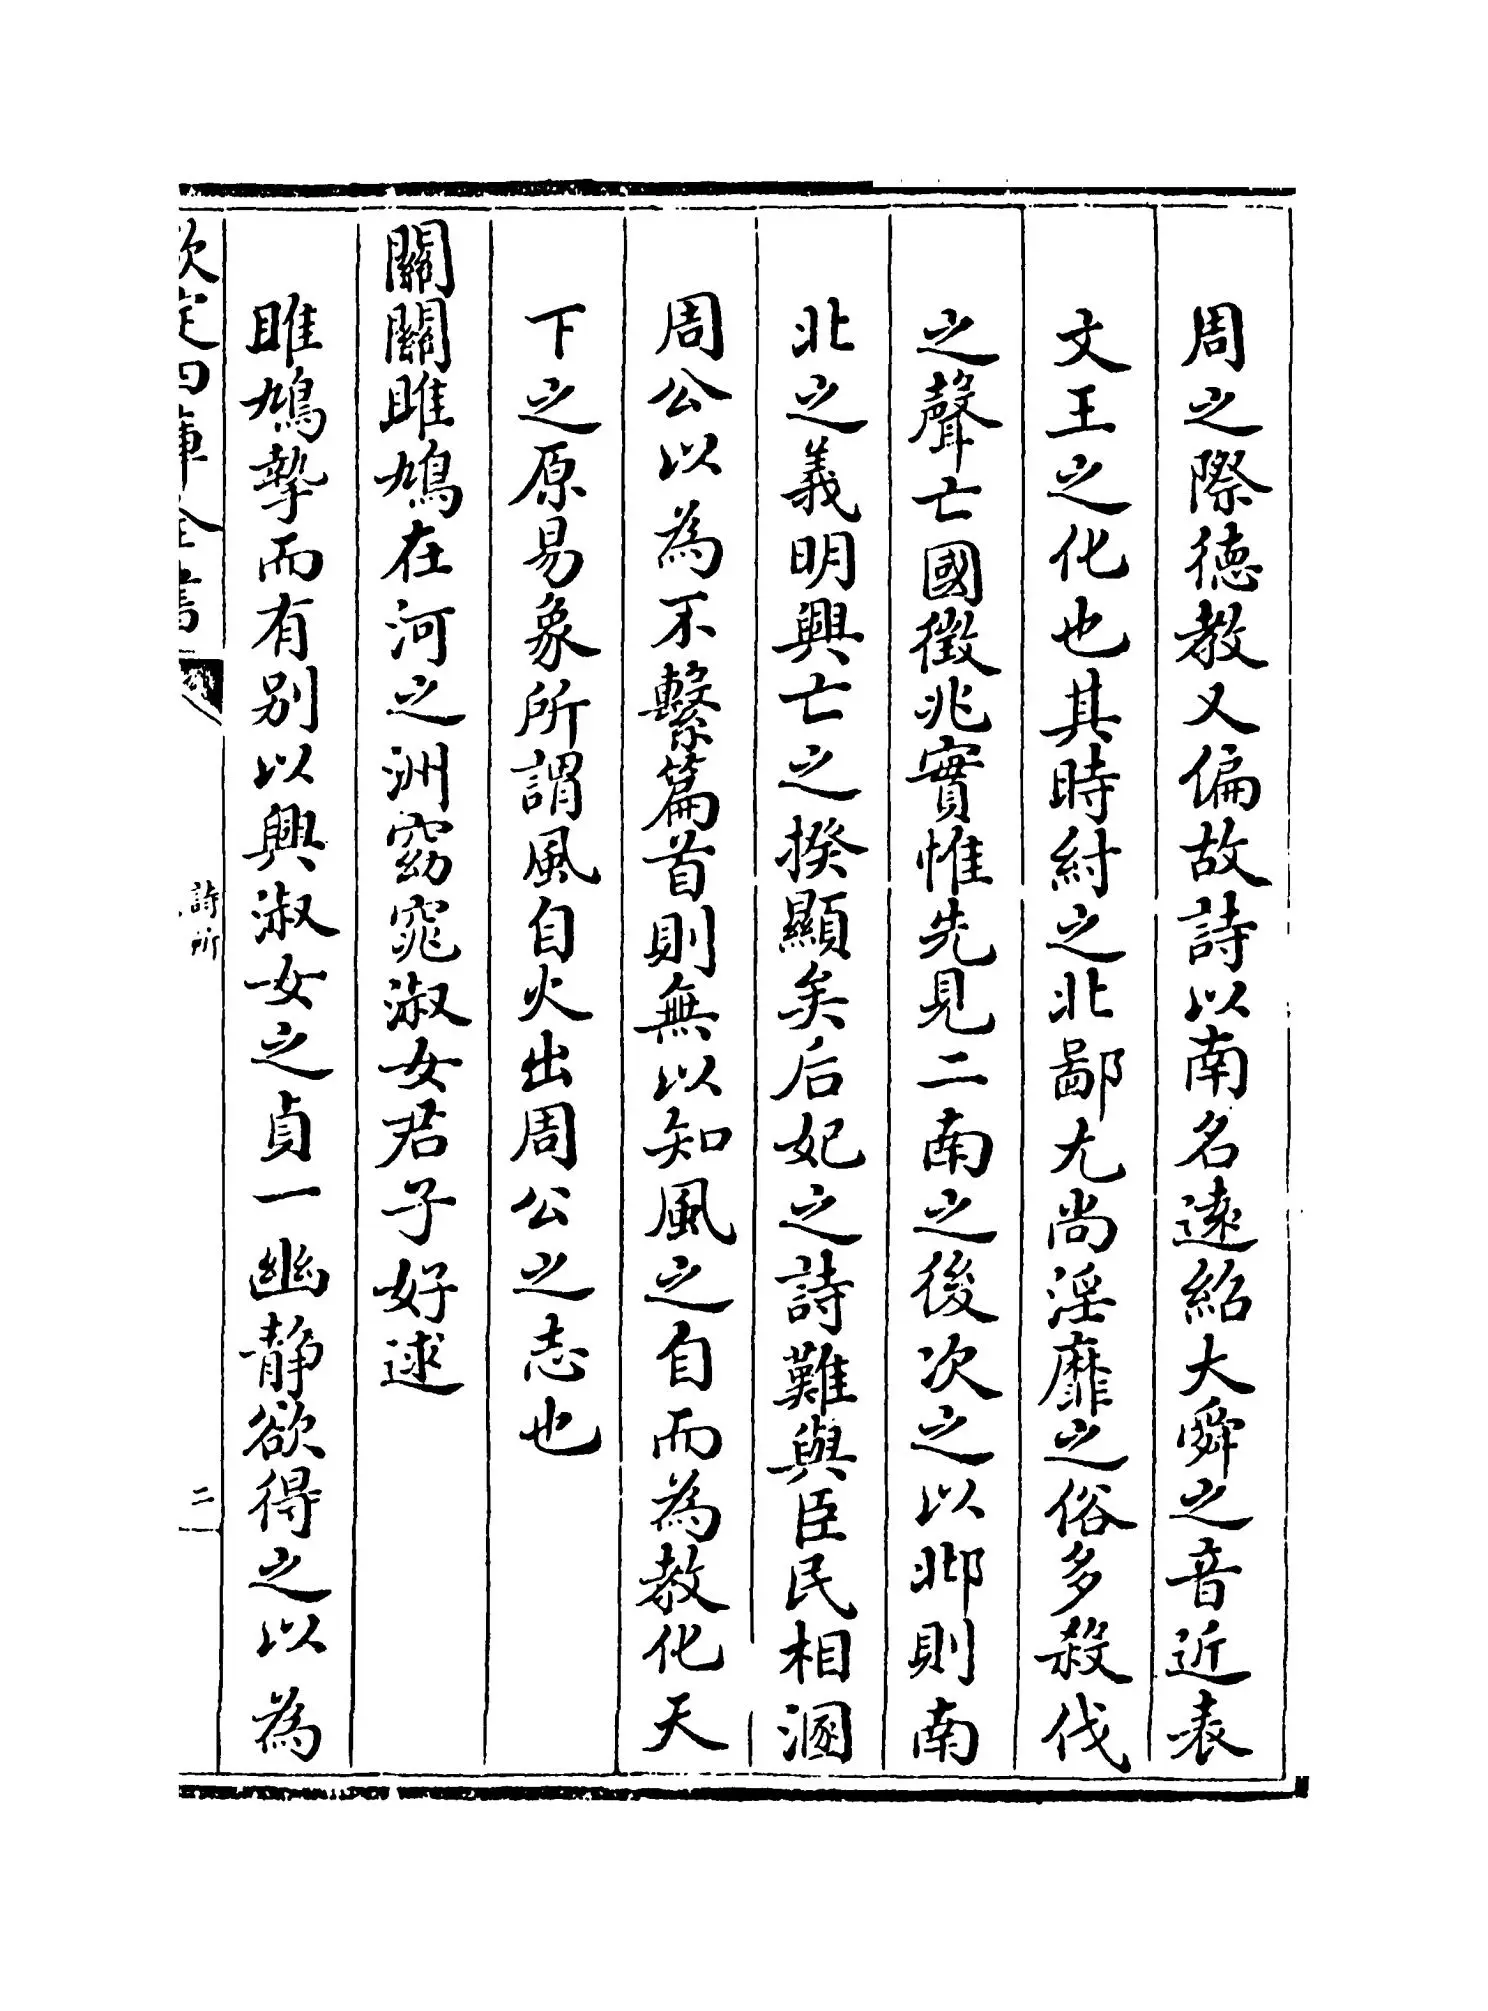 周之際德教又偏故詩以南名遠紹大舜之音近表
文王之化也其時紂之北鄙尤尚淫靡之俗多殺伐
之聲亡國徵兆實惟先見二南之後次之以邶則南
北之義明興亡之揆顯矣后妃之詩難與臣民相溷
周公以為不繫篇首則無以知風之自而為教化天
下之原易象所謂風自火出周公之志也
關關雎鳩在河之洲窈窕淑女君子好逑
雎鳩摯而有别以興淑女之貞一幽静欲得之以為
欽定四庫全書
詩所
二